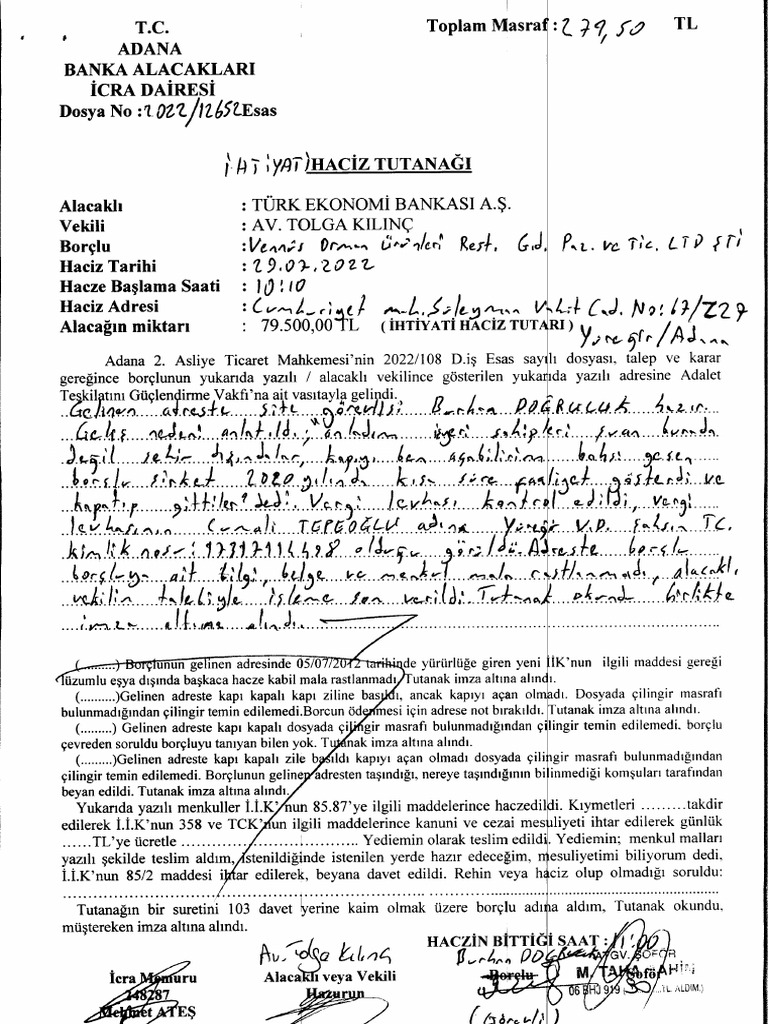 T.C.
ADANA
BANKA ALACAKLARI
İCRA DAİRESİ
Dosya No : 2022/12652 Esas
Toplam Masraf : 279,50 TL
İHTİYATİ HACİZ TUTANAĞI
Alacaklı : TÜRK EKONOMİ BANKASI A.Ş.
Vekili : AV. TOLGA KILINÇ
Borçlu : Vennüs Orman Ürünleri Rest. Gıd. Paz. ve Tic. LTD ŞTİ
Haciz Tarihi : 29.07.2022
Hacze Başlama Saati : 10:10
Haciz Adresi : Cumhuriyet mah. Süleyman Vahit Cad. No: 67/Z27
Alacağın miktarı : 79.500,00 TL ( İHTİYATİ HACİZ TUTARI ) Yüreğir/Adana
Adana 2. Asliye Ticaret Mahkemesi'nin 2022/108 D.iş Esas sayılı dosyası, talep ve karar
gereğince borçlunun yukarıda yazılı / alacaklı vekilince gösterilen yukarıda yazılı adresine Adalet
Teşkilatını Güçlendirme Vakfı'na ait vasıtayla gelindi.
Gelinen adreste site görevlisi Burhan DOĞRULUK hazır.
Geliş nedeni anlatıldı, "anladım işyeri sahipleri şuan burada
değil şehir dışındalar, kapıyı ben açabilirim bahsi geçen
borçlu şirket 2020 yılında kısa süre faaliyet gösterdi ve
kapatıp gittiler" dedi. Vergi levhası kontrol edildi, vergi
levhasının Cumali TEPEOĞLU adına Yüreğir V.D. şahsın TC.
kimlik nosu: olduğu görüldü. Adreste borçlu
borçluya ait bilgi, belge ve menkul mala rastlanmadı, alacaklı
vekilin talebiyle işleme son verildi. Tutanak okundu birlikte
imza altına alındı.
(.........) Borçlunun gelinen adresinde 05/07/2012 tarihinde yürürlüğe giren yeni İİK'nun ilgili maddesi gereği
lüzumlu eşya dışında başkaca hacze kabil mala rastlanmadı, Tutanak imza altına alındı.
(..........)Gelinen adreste kapı kapalı kapı ziline basıldı, ancak kapıyı açan olmadı. Dosyada çilingir masrafı
bulunmadığından çilingir temin edilemedi.Borcun ödenmesi için adrese not bırakıldı. Tutanak imza altına alındı.
(.........) Gelinen adreste kapı kapalı dosyada çilingir masrafı bulunmadığından çilingir temin edilemedi. borçlu
çevreden soruldu borçluyu tanıyan bilen yok. Tutanak imza altına alındı.
(..........)Gelinen adreste kapı kapalı zile basıldı kapıyı açan olmadı dosyada çilingir masrafı bulunmadığından
çilingir temin edilemedi. Borçlunun gelinen adresten taşındığı, nereye taşındığının bilinmediği komşuları tarafından
beyan edildi. Tutanak imza altına alındı.
Yukarıda yazılı menkuller İ.İ.K' nun 85.87'ye ilgili maddelerince haczedildi. Kıymetleri .........takdir
edilerek İ.İ.K'nun 358 ve TCK'nun ilgili maddelerince kanuni ve cezai mesuliyeti ihtar edilerek günlük
......TL'ye ücretle .................................... Yediemin olarak teslim edildi. Yediemin; menkul malları
yazılı şekilde teslim aldım, istenildiğinde istenilen yerde hazır edeceğim, mesuliyetimi biliyorum dedi,
İ.İ.K'nun 85/2 maddesi ihtar edilerek, beyana davet edildi. Rehin veya haciz olup olmadığı soruldu:
Tutanağın bir suretini 103 davet yerine kaim olmak üzere borçlu adına aldım, Tutanak okundu,
müştereken imza altına alındı.
HACZİN BİTTİĞİ SAAT : 11:00
Av. Tolga Kılınç
Burhan
ATGV. ŞOFÖR
İcra Memuru
Alacaklı veya Vekili
Borçlu
Şoför
M. TAHA ŞAHİN
148287
Hazurun
06 BHJ 919 ( TL. ALDIM.)
Mehmet ATEŞ
(Görevli)